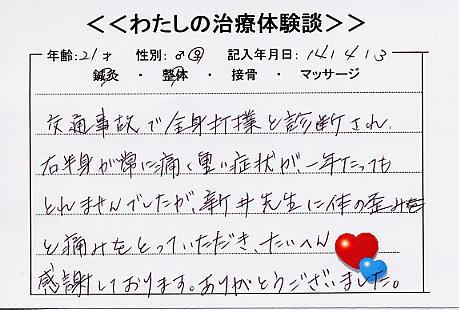 ＜＜わたしの治療体験談＞＞
年齢:21才 性別:♂♀ 記入年月日:14/4/3
鍼灸 ・ 整体 ・ 接骨 ・ マッサージ
交通事故で全身打撲と診断され、
右半身が常に痛く重い症状が、一年たっても
とれませんでしたが、新井先生に体の歪みを
と痛みをとっていただき、たいへん
感謝しております。ありがとうございました。